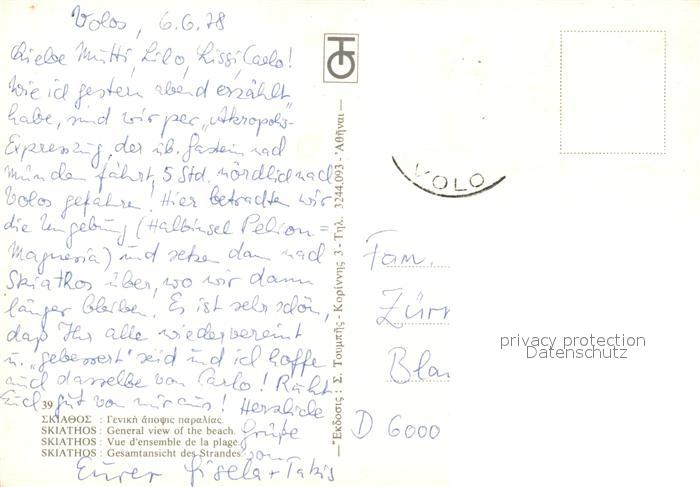 Volos, 6.6.78
Liebe Mutti, Lilo, Lissi, Carlo!
Wie ich gestern abend erzählt
habe, sind wir per „Akropolis-
Expresszug, der üb. Gastein nach
München fährt, 5 Std. nördlich nach
Volos gefahren! Hier betrachten wir
die Umgebung (Halbinsel Pelion =
Magnesia) und setzen dann nach
Skiathos über, wo wir dann
länger bleiben. Es ist sehr schön,
daß Ihr alle wiedervereint
u. „gebessert" seid und ich hoffe
auch dasselbe von Carlo! Ruht
Euch gut von mir aus! Herzliche
Grüße
von
Eurer Gisela + Takis
39
ΣΚΙΑΘΟΣ : Γενική ἄποψις παραλίας.
SKIATHOS : General view of the beach.
SKIATHOS : Vue d'ensemble de la plage.
SKIATHOS : Gesamtansicht des Strandes.
—Ἔκδοσις : Σ. Τουμπῆς - Κορίννης 3 - Τηλ. 3244.093 - Ἀθῆναι—
VOLO
Fam.
Zürr
Blau
D 6000
privacy protection
Datenschutz